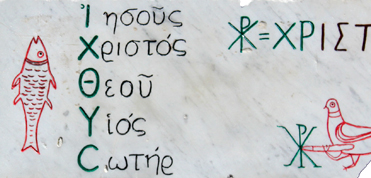 Ἰησοῦς
Χριστός
Θεοῦ
Υἱός
Cωτήρ
☧=ΧΡΙΣΤ
☧